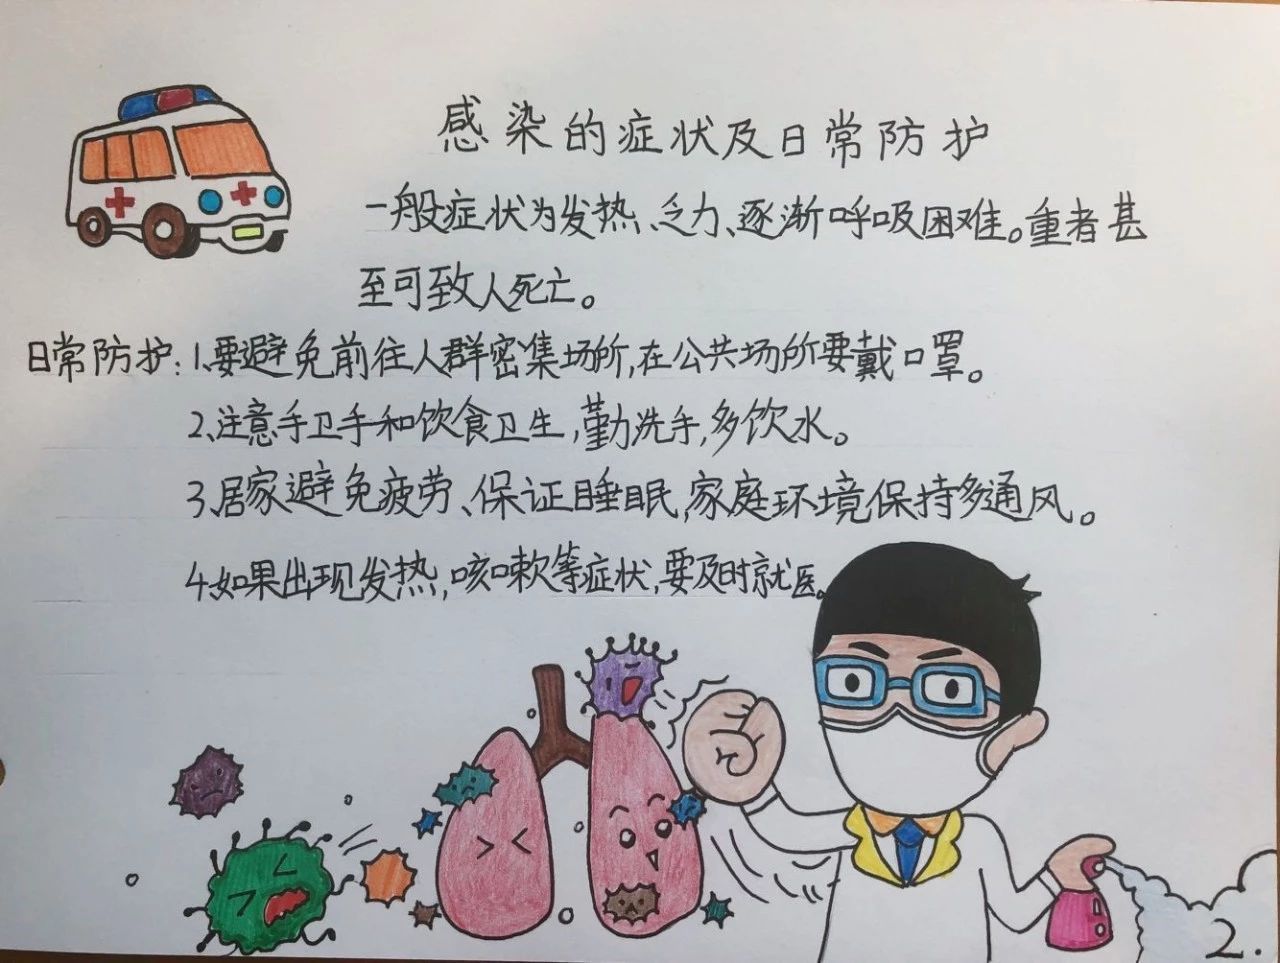 感染的症状及日常防护
一般症状为发热、乏力、逐渐呼吸困难。重者甚
至可致人死亡。
日常防护:1.要避免前往人群密集场所,在公共场所要戴口罩。
2、注意手卫手和饮食卫生,勤洗手,多饮水。
3、居家避免疲劳、保证睡眠,家庭环境保持多通风。
4、如果出现发热,咳嗽等症状,要及时就医。
2.